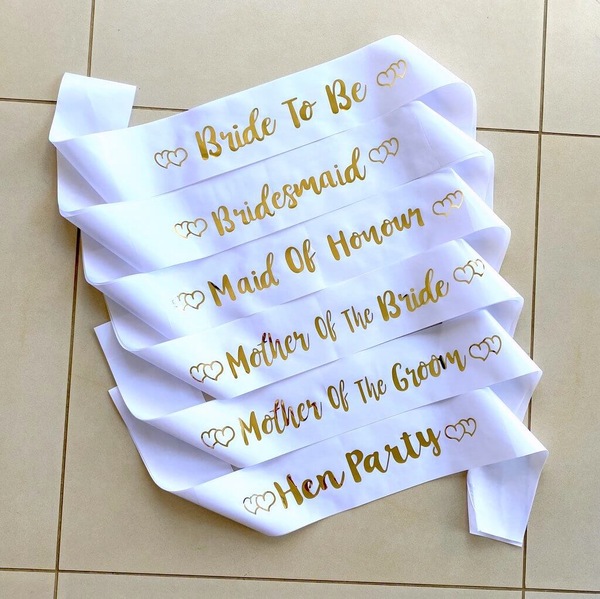 Bride To Be
Bridesmaid
Maid Of Honour
Mother Of The Bride
Mother Of The Groom
Hen Party